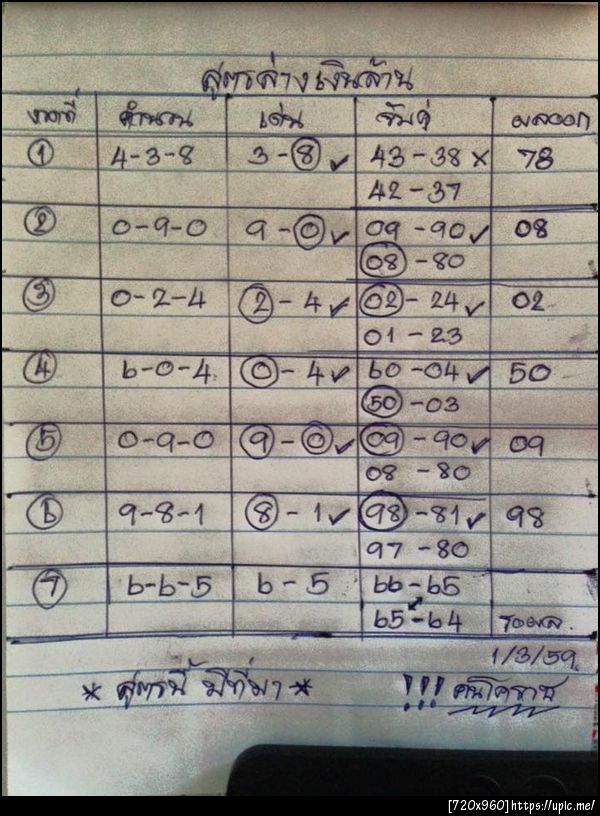 สูตรล่างเงินล้าน
งวดที่ คำนวน เด่น จับคู่ ผลออก
1 4-3-8 3-8✓ 43-38× 78
42-37
2 0-9-0 9-0✓ 09-90✓ 08
08-80
3 0-2-4 2-4✓ 02-24✓ 02
01-23
4 6-0-4 0-4✓ 60-04✓ 50
50-03
5 0-9-0 9-0✓ 09-90✓ 09
08-80
6 9-8-1 8-1✓ 98-81✓ 98
97-80
7 6-6-5 6-5 66-65
65-64 รอผล.
1/3/59.
* สูตรนี้ มีที่มา * !!! คนโคราช
[720x960]https://upic.me/